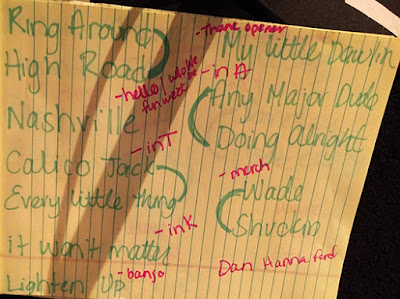 Ring Around
High Road
-hello/ who we
fun wett be
Nashville
-in T
Calico Jack
Every little thing
-in K
it won't matter
Lighten Up -banjo
-Thank opener
My little Dawlin
-in A
Any Major Dude
Doing Alright
-merch
Wade
Shuckin
Dan Hannaford